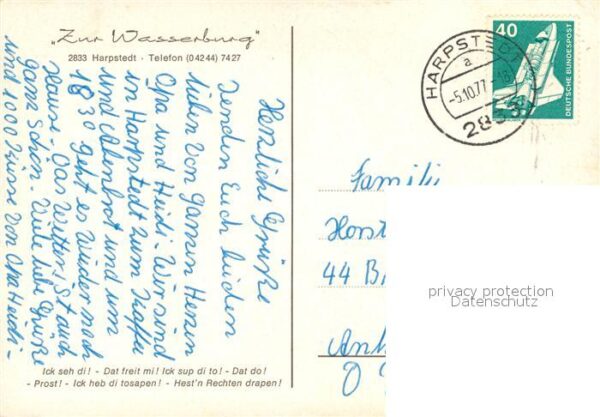 „Zur Wasserburg"
2833 Harpstedt · Telefon (04244) 7427
Herzliche Grüße
senden Euch beiden
lieben von ganzen Herzen
Opa und Heidi. Wir sind
in Harpstedt zum Kaffe
und Abenbrot und um
18.30 geht es wieder nach
Hause. Das Wetter ist auch
ganz schön. Viele liebe Grüße
und 1000 Küsse von Opa Heidi -
Ick seh di! - Dat freit mi! Ick sup di to! - Dat do!
- Prost! - Ick heb di tosapen! - Hest'n Rechten drapen!
HARPSTEDT
a
-5.10.77
18
2833
40
DEUTSCHE BUNDESPOST
Famili
Horst
44
privacy protection
Datenschutz